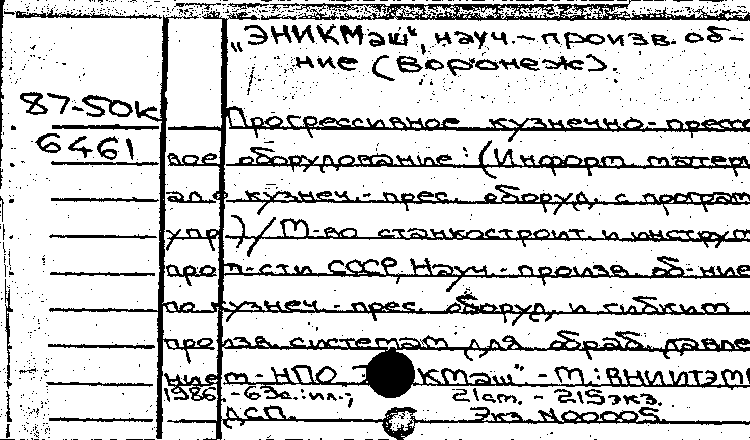 „ЭНИКМаш", науч.-произв. об-
ние (Воронеж).
87-50к
6461
Прогрессивное кузнечно-прессо
вое оборудование: (Информ. матери
ал о кузнеч.-прес. оборуд. с програм
упр)/М-во станкостроит. и инструм
пром-сти СССР, Науч.-произв. об-ние
по кузнеч.-прес. оборуд. и гибким
произв. системам для обраб. давле
нием-НПО КМаш"-М.:ВНИИТЭМ
1986.-63с.:ил.; 21см.-215экз.
ДСП. Экз. N00005